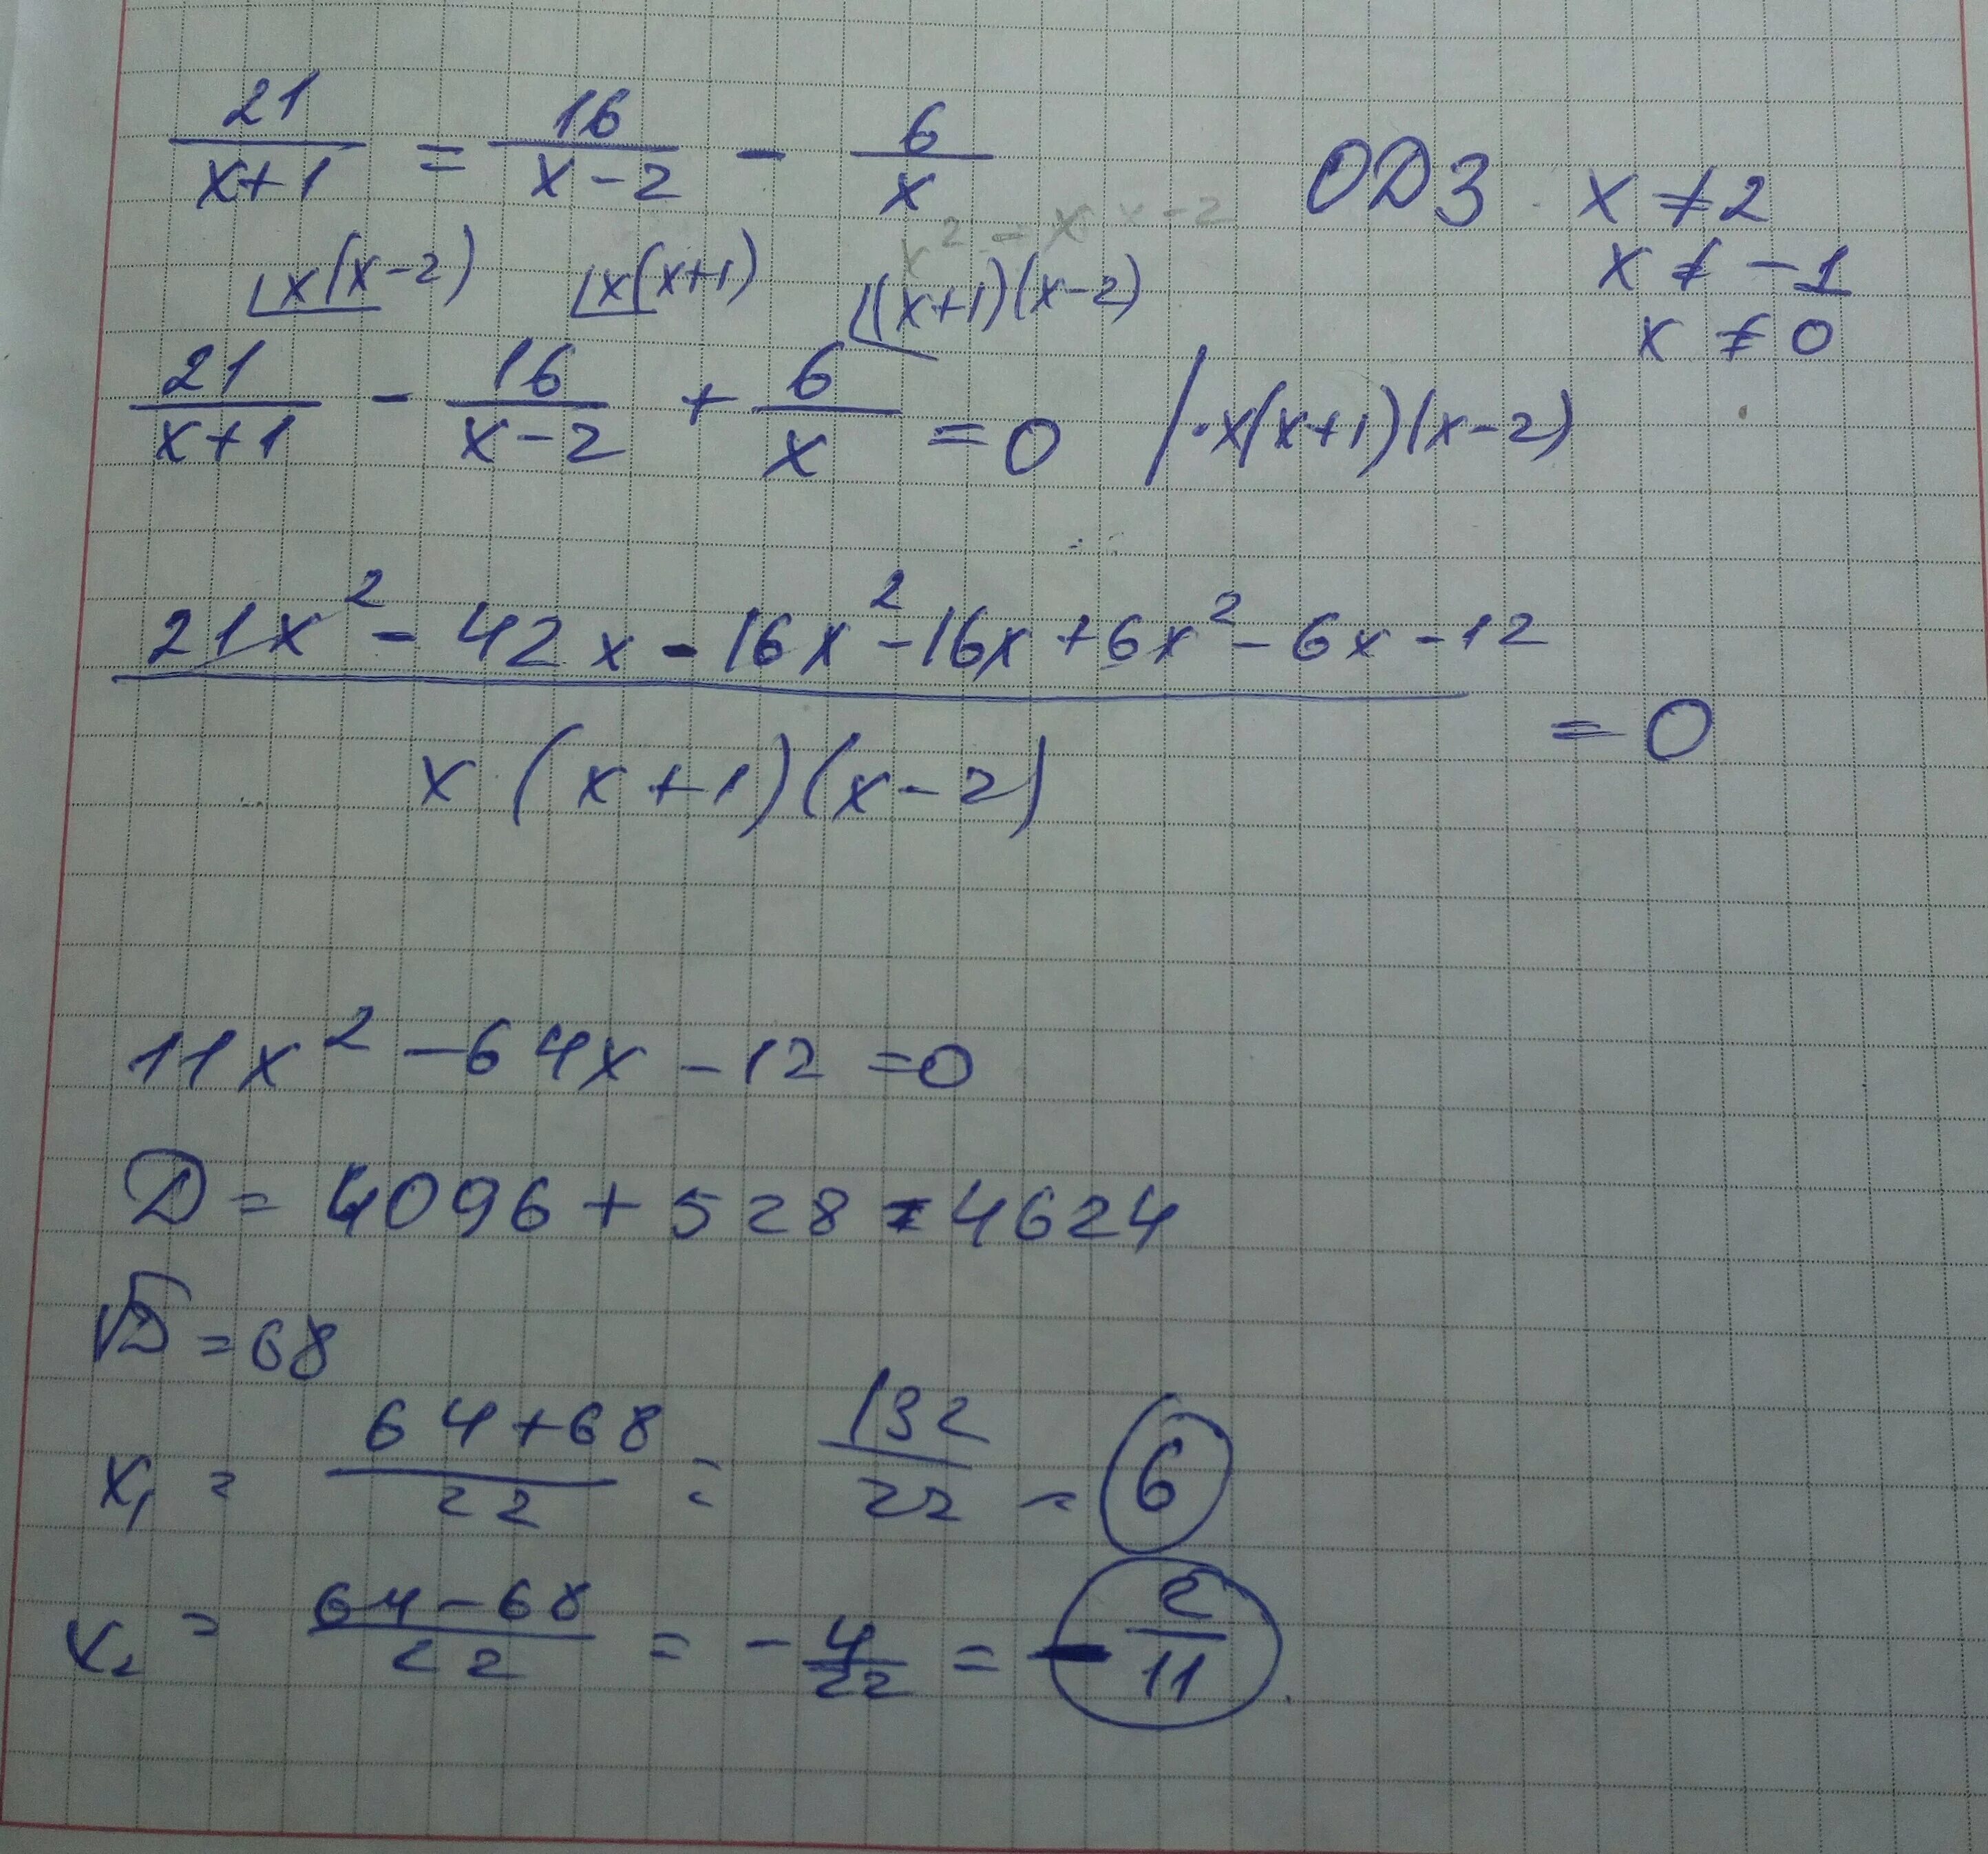 21/(x+1) = 16/(x-2) - 6/x   ОДЗ x ≠ 2
x² - x x - 2
x ≠ -1
x(x-2)   x(x+1)   (x+1)(x-2)
x ≠ 0
21/(x+1) - 16/(x-2) + 6/x = 0 / · x(x+1)(x-2)
21x² - 42x - 16x² - 16x + 6x² - 6x - 12
x(x+1)(x-2)
= 0
11x² - 64x - 12 = 0
Д = 4096 + 528 = 4624
√Д = 68
x₁ = (64+68)/22 = 132/22 = 6
x₂ = (64-68)/22 = -4/22 = -2/11